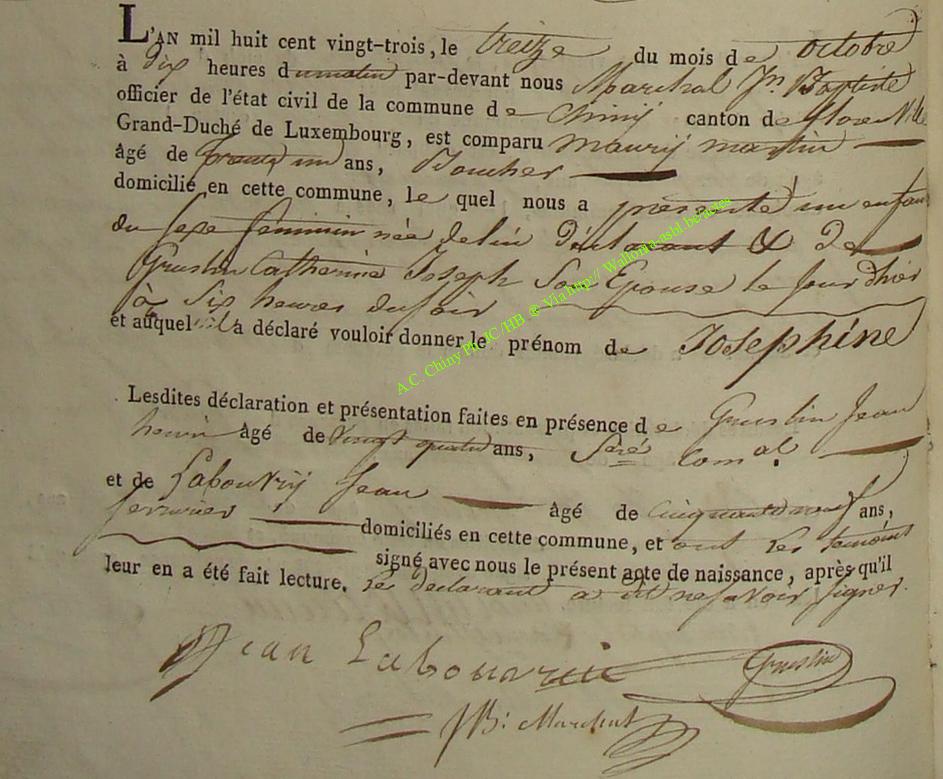 L'AN mil huit cent vingt-trois, le treize du mois de octobre
à dix heures du matin par-devant nous Marchal Jn Baptiste
officier de l'état civil de la commune de Chiny canton de florenville
Grand-Duché de Luxembourg, est comparu Maury martin
âgé de trente un ans,
domicilié en cette commune, le quel nous a présenté un enfant
du sexe féminin née de lui déclarant & de
Gruslin Catherine Joseph Son Epouse le jour d'hier
à Six heures du soir
et auquel il a déclaré vouloir donner le prénom de Josephine
Lesdites déclaration et présentation faites en présence de Gruslin Jean
henri âgé de vingt quatre ans, Secré comal.
et de Labouvrij Jean âgé de cinquante neuf ans,
serrurier domiciliés en cette commune, et ont les temoins
signé avec nous le présent acte de naissance, après qu'il
leur en a été fait lecture. Le declarant a dit ne savoir signer.
Jean Labouvrie Gruslin
JB: Marchal
A.C. Chiny Ph. JC/HB @ Via http:// Wallonia-asbl.be/actes